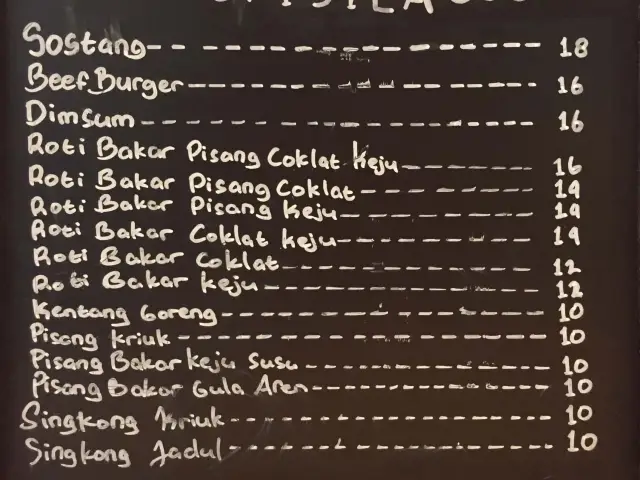 Sostang 18
Beef Burger 16
Dimsum 16
Roti Bakar Pisang Coklat Keju 16
Roti Bakar Pisang Coklat 14
Roti Bakar Pisang Keju 14
Roti Bakar Coklat Keju 14
Roti Bakar Coklat 12
Roti Bakar Keju 12
Kentang Goreng 10
Pisang Kriuk 10
Pisang Bakar Keju Susu 10
Pisang Bakar Gula Aren 10
Singkong Kriuk 10
Singkong Jadul 10